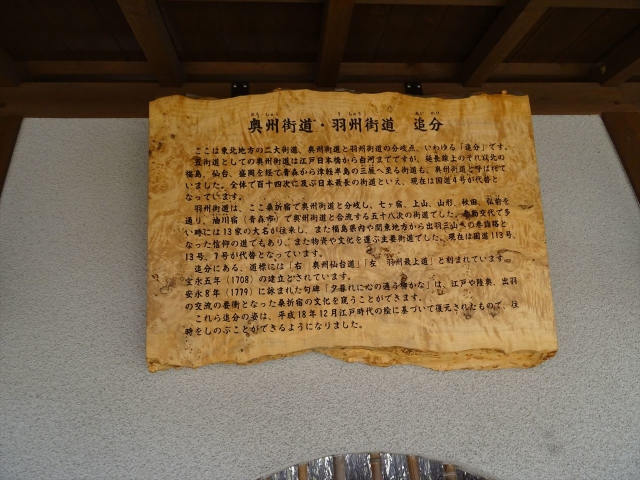 おうしゅう うしゅう おいわけ
奥州街道・羽州街道 追分
ここは東北地方の二大街道、奥州街道と羽州街道の分岐点、いわゆる「追分」です。
五街道としての奥州街道は江戸日本橋から白河までですが、延長線上のそれ以北の
福島、仙台、盛岡を経て青森から津軽半島の三厩へ至る街道も、奥州街道と呼ばれて
いました。全体で百十四次に及ぶ日本最長の街道といえ、現在は国道4号が代替と
なっています。
羽州街道は、ここ桑折宿で奥州街道と分岐し、七ヶ宿、上山、山形、秋田、弘前を
通り、油川宿(青森市)で奥州街道と合流する五十八次の街道でした。参勤交代で多
い時には13家の大名が往来し、また福島県内や関東地方から出羽三山への参詣路と
なった信仰の道でもあり、また物資や文化を運ぶ主要街道でした。現在は国道113号、
13号、7号が代替となっています。
追分にある、道標には「右 奥州仙台道」「左 羽州最上道」と刻まれています。
宝永五年(1708)の建立とされています。
安永8年(1779)に詠まれた句碑「夕暮れに心の通う柳かな」は、江戸や陸奥、出羽
の交流の要衝となった桑折宿の文化を窺うことができます。
これら追分の姿は、平成18年12月江戸時代の絵に基づいて復元されたもので、往
時をしのぶことができるようになりました。